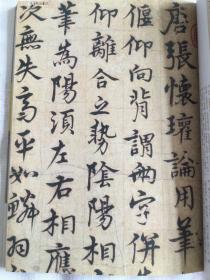 唐張懷瓘論用筆
偃仰向背謂兩字併
仰離合之勢陰陽相
筆為陽須左右相應
次無失高平如鱗羽